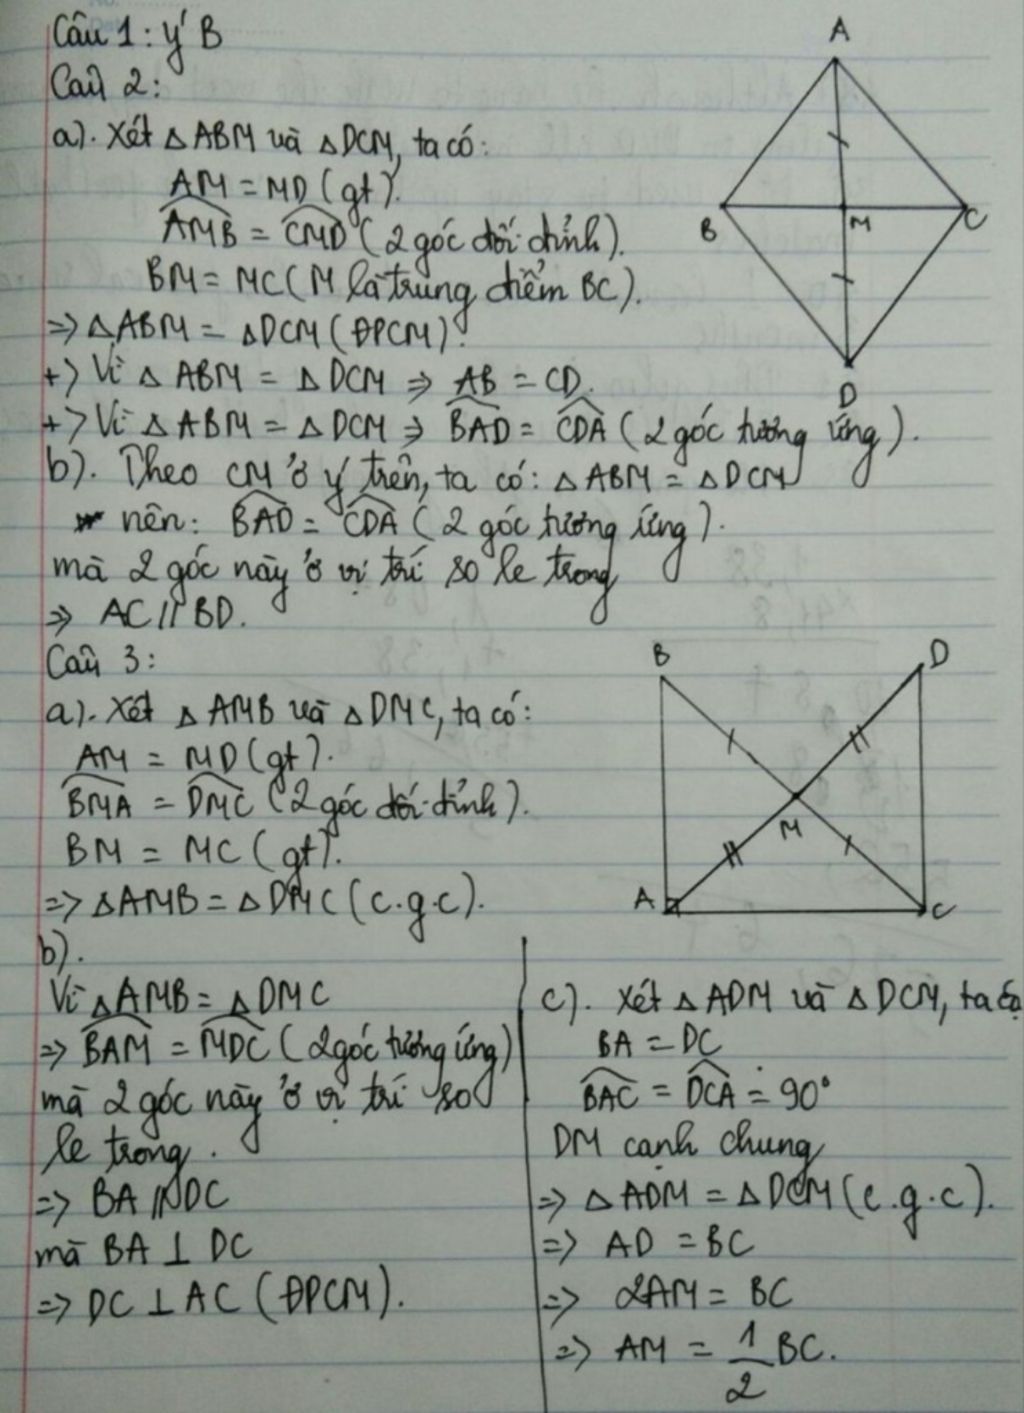 Câu 1: ý B
Câu 2:
a). Xét △ABM và △DCM, ta có:
AM = MD (gt).
AMB = CMD (2 góc đối đỉnh).
BM = MC (M là trung điểm BC).
=> △ABM = △DCM (ĐPCM).
+> Vì △ABM = △DCM => AB = CD.
+> Vì △ABM = △DCM => BAD = CDA (2 góc tương ứng).
b). Theo CM ở ý trên, ta có: △ABM = △DCM
nên: BAD = CDA (2 góc tương ứng).
mà 2 góc này ở vị trí so le trong
=> AC // BD.
A
B
M
C
D
Câu 3:
a). Xét △AMB và △DMC, ta có:
AM = MD (gt).
BMA = DMC (2 góc đối đỉnh).
BM = MC (gt).
=> △AMB = △DMC (c.g.c).
B
D
M
A
C
b).
Vì △AMB = △DMC
=> BAM = MDC (2 góc tương ứng)
mà 2 góc này ở vị trí so
le trong.
=> BA // DC
mà BA ⊥ DC
=> DC ⊥ AC (ĐPCM).
c). Xét △ADM và △DCM, ta có
BA = DC
BAC = DCA = 90°
DM cạnh chung
=> △ADM = △DCM (c.g.c).
=> AD = BC
=> 2AM = BC
=> AM = 1/2 BC.